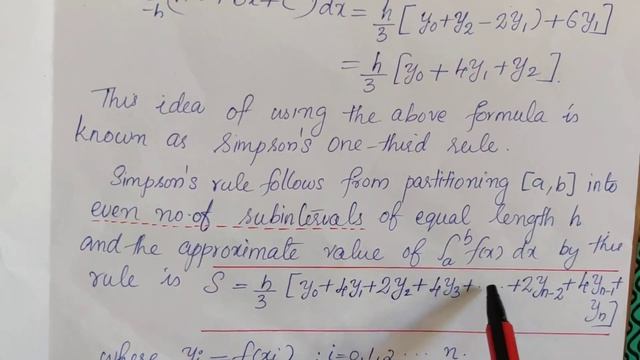 ∫₋ₕ ( + Bx + C ) dx = h/3 [y₀ + y₂ − 2y₁) + 6y₁]
= h/3 [y₀ + 4y₁ + y₂].
This idea of using the above formula is
known as Simpson's one-third rule.
Simpson's rule follows from partitioning [a,b] into
even no. of subintervals of equal length h
and the approximate value of ∫ₐᵇ f(x) dx by this
rule is S = h/3 [y₀ + 4y₁ + 2y₂ + 4y₃ + . . + 2yₙ₋₂ + 4yₙ₋₁ +
yₙ]
where yᵢ = f(xᵢ) ; i = 0, 1, 2 ... n.